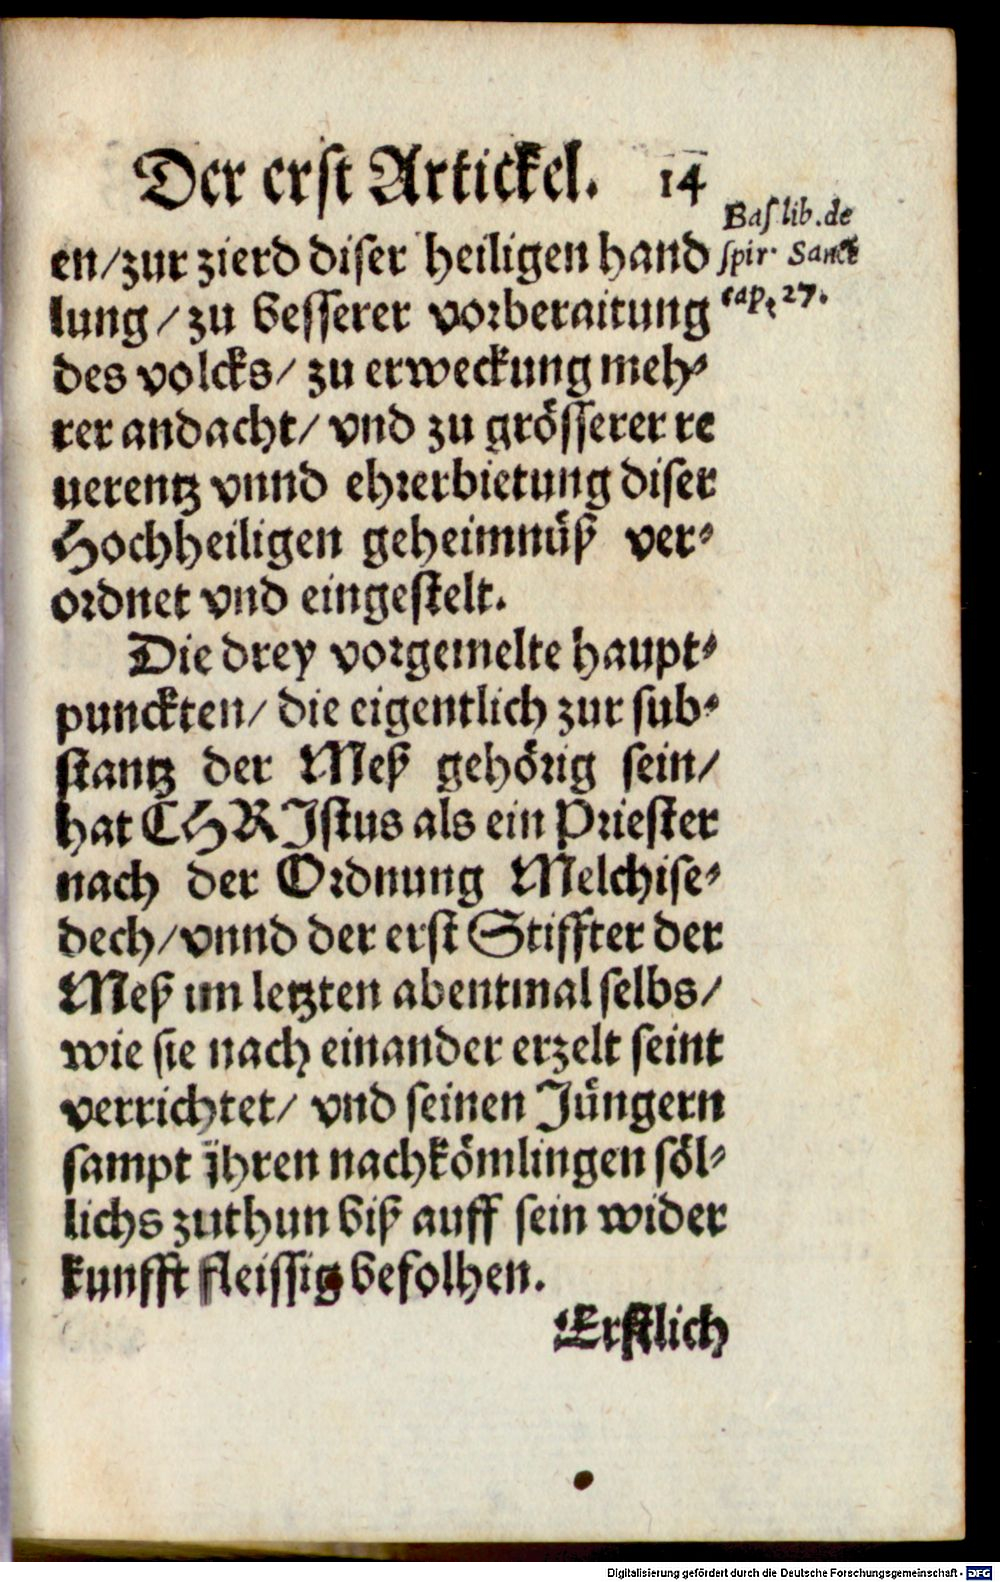 Der erst Artickel. 14
Baſ lib. de
ſpir. Sanct
cap. 27.
en/zur zierd diſer heiligen hand
lung/zu beſſerer vorberaitung
des volcks/ zu erweckung meh⸗
rer andacht/ vnd zu gröſſerer re
uerentz vnnd ehrerbietung diſer
Hochheiligen geheimnüß ver⸗
ordnet vnd eingeſtelt.
Die drey vorgemelte haupt⸗
puncktꝛen/ die eigentlich zur ſub⸗
ſtantz der Meß gehörig ſein/
hat CHRIſtus als ein Prieſter
nach der Ordnung Melchiſe⸗
dech/vnnd der erſt Stiffter der
Meß im letzten abentmal ſelbs/
wie ſie nach einander erzelt ſeint
verrichtet/ vnd ſeinen Jüngern
ſampt jhren nachkömlingen ſöl⸗
lichs zuthun biß auff ſein wider
kunfft fleiſſig befolhen.
Erſtlich
Digitalisierung gefördert durch die Deutsche Forschungsgemeinschaft - DFG